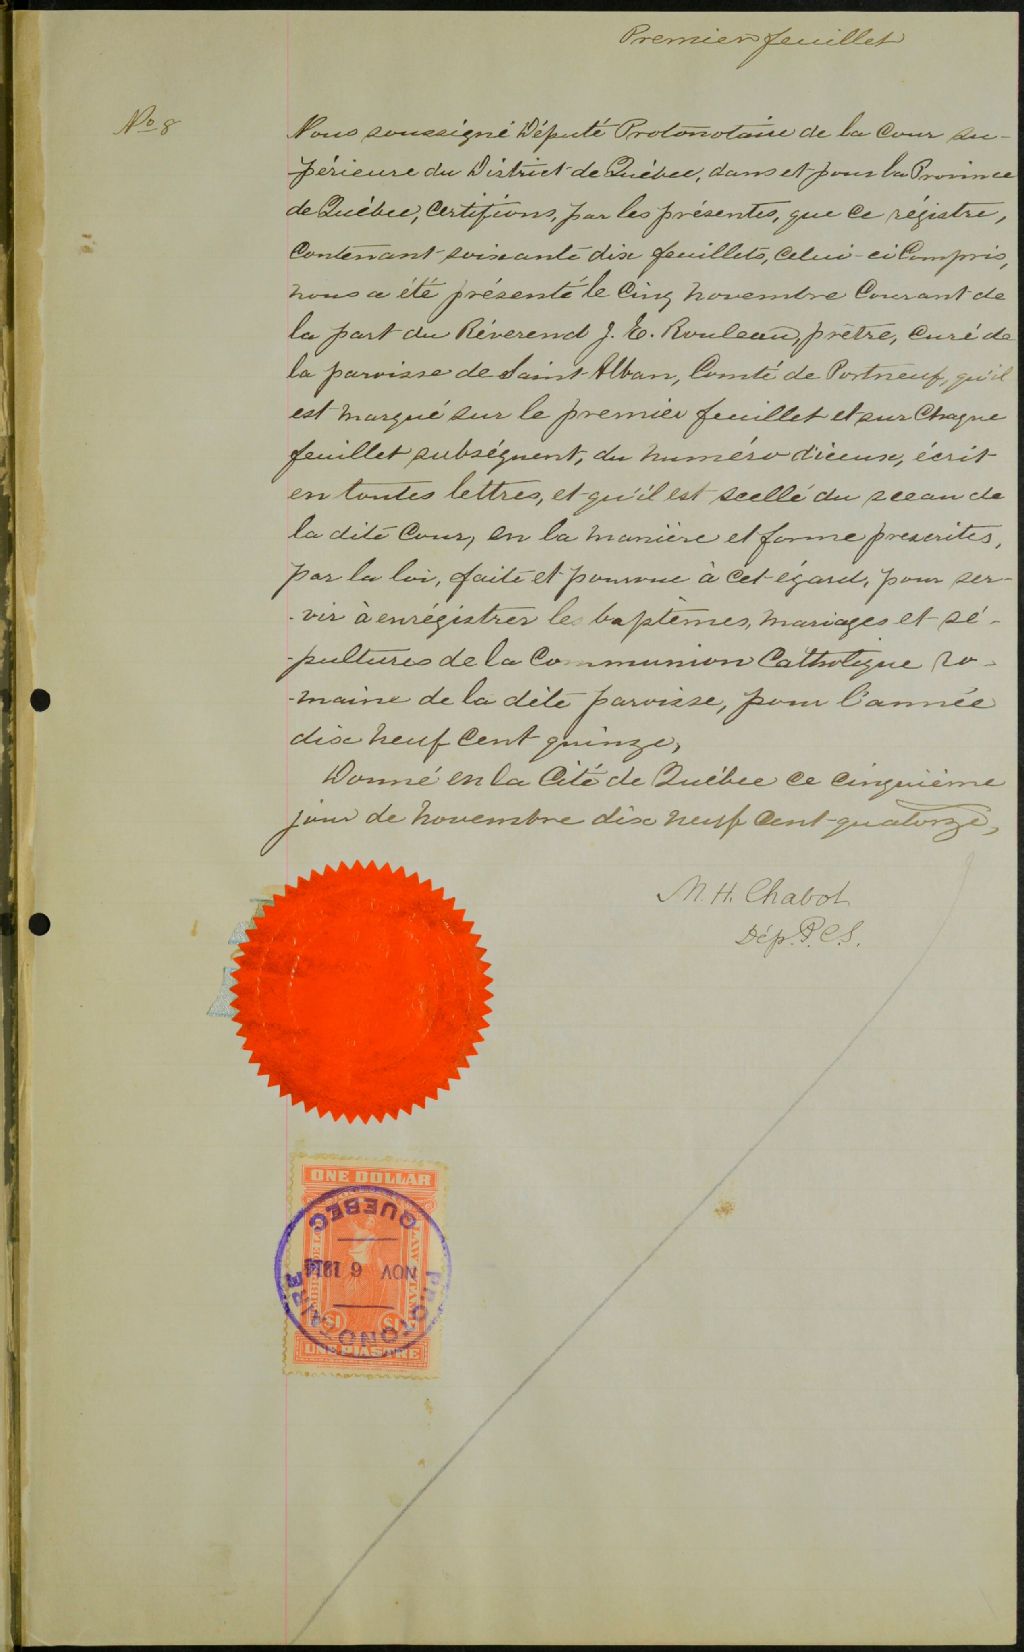 Premier feuillet
No 8
Nous soussigné Député Protonotaire de la Cour su-
-périeure du District de Québec, dans et pour la Province
de Québec, Certifions, par les présentes, que ce régistre,
Contenant soixante dix feuillets, celui-ci Compris,
nous a été présenté le Cinq novembre Courant de
la part du Réverend J. E. Rouleau, prêtre, curé de
la paroisse de Saint Alban, Comté de Portneuf, qu'il
est marqué sur le premier feuillet et sur Chaque
feuillet subséquent, du numéro d'iceux, écrit
en toutes lettres, et qu'il est scellé du sceau de
la dite Cour, en la manière et forme prescrites,
par la loi, faite et pourvue à cet égard, pour ser-
-vir à enrégistrer les baptêmes, mariages et sé-
-pultures de la Communion Catholique ro-
-maine de la dite paroisse, pour l'année
dix neuf Cent quinze,
Donné en la Cité de Québec ce cinquième
jour de Novembre dix neuf Cent quatorze,
M. H. Chabot
Dép. P. C. S.
ONE DOLLAR
QUEBEC
NOV 6 1914
PROTONOTAIRE
LAW STAMP
$1 $1
UNE PIASTRE